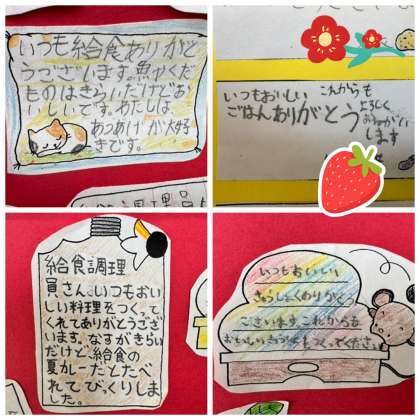 いつも給食ありがと
うございます。魚やくだ
ものはきらいだけどお
いしいです。わたしは、
あつあげが大好
きです。
いつもおいしい
ごはんありがとう
これからも
よろしく
おねがい
します
給食調理
員さん、いつもおい
しい料理をつくって
くれてありがとうござ
います。なすがきらい
だけど給食の
夏カレーだとたべ
れてびっくりしま
した。
いつもおいしい
きゅうしょくありがとう
ございます。これからも
おいしい
つくってください。